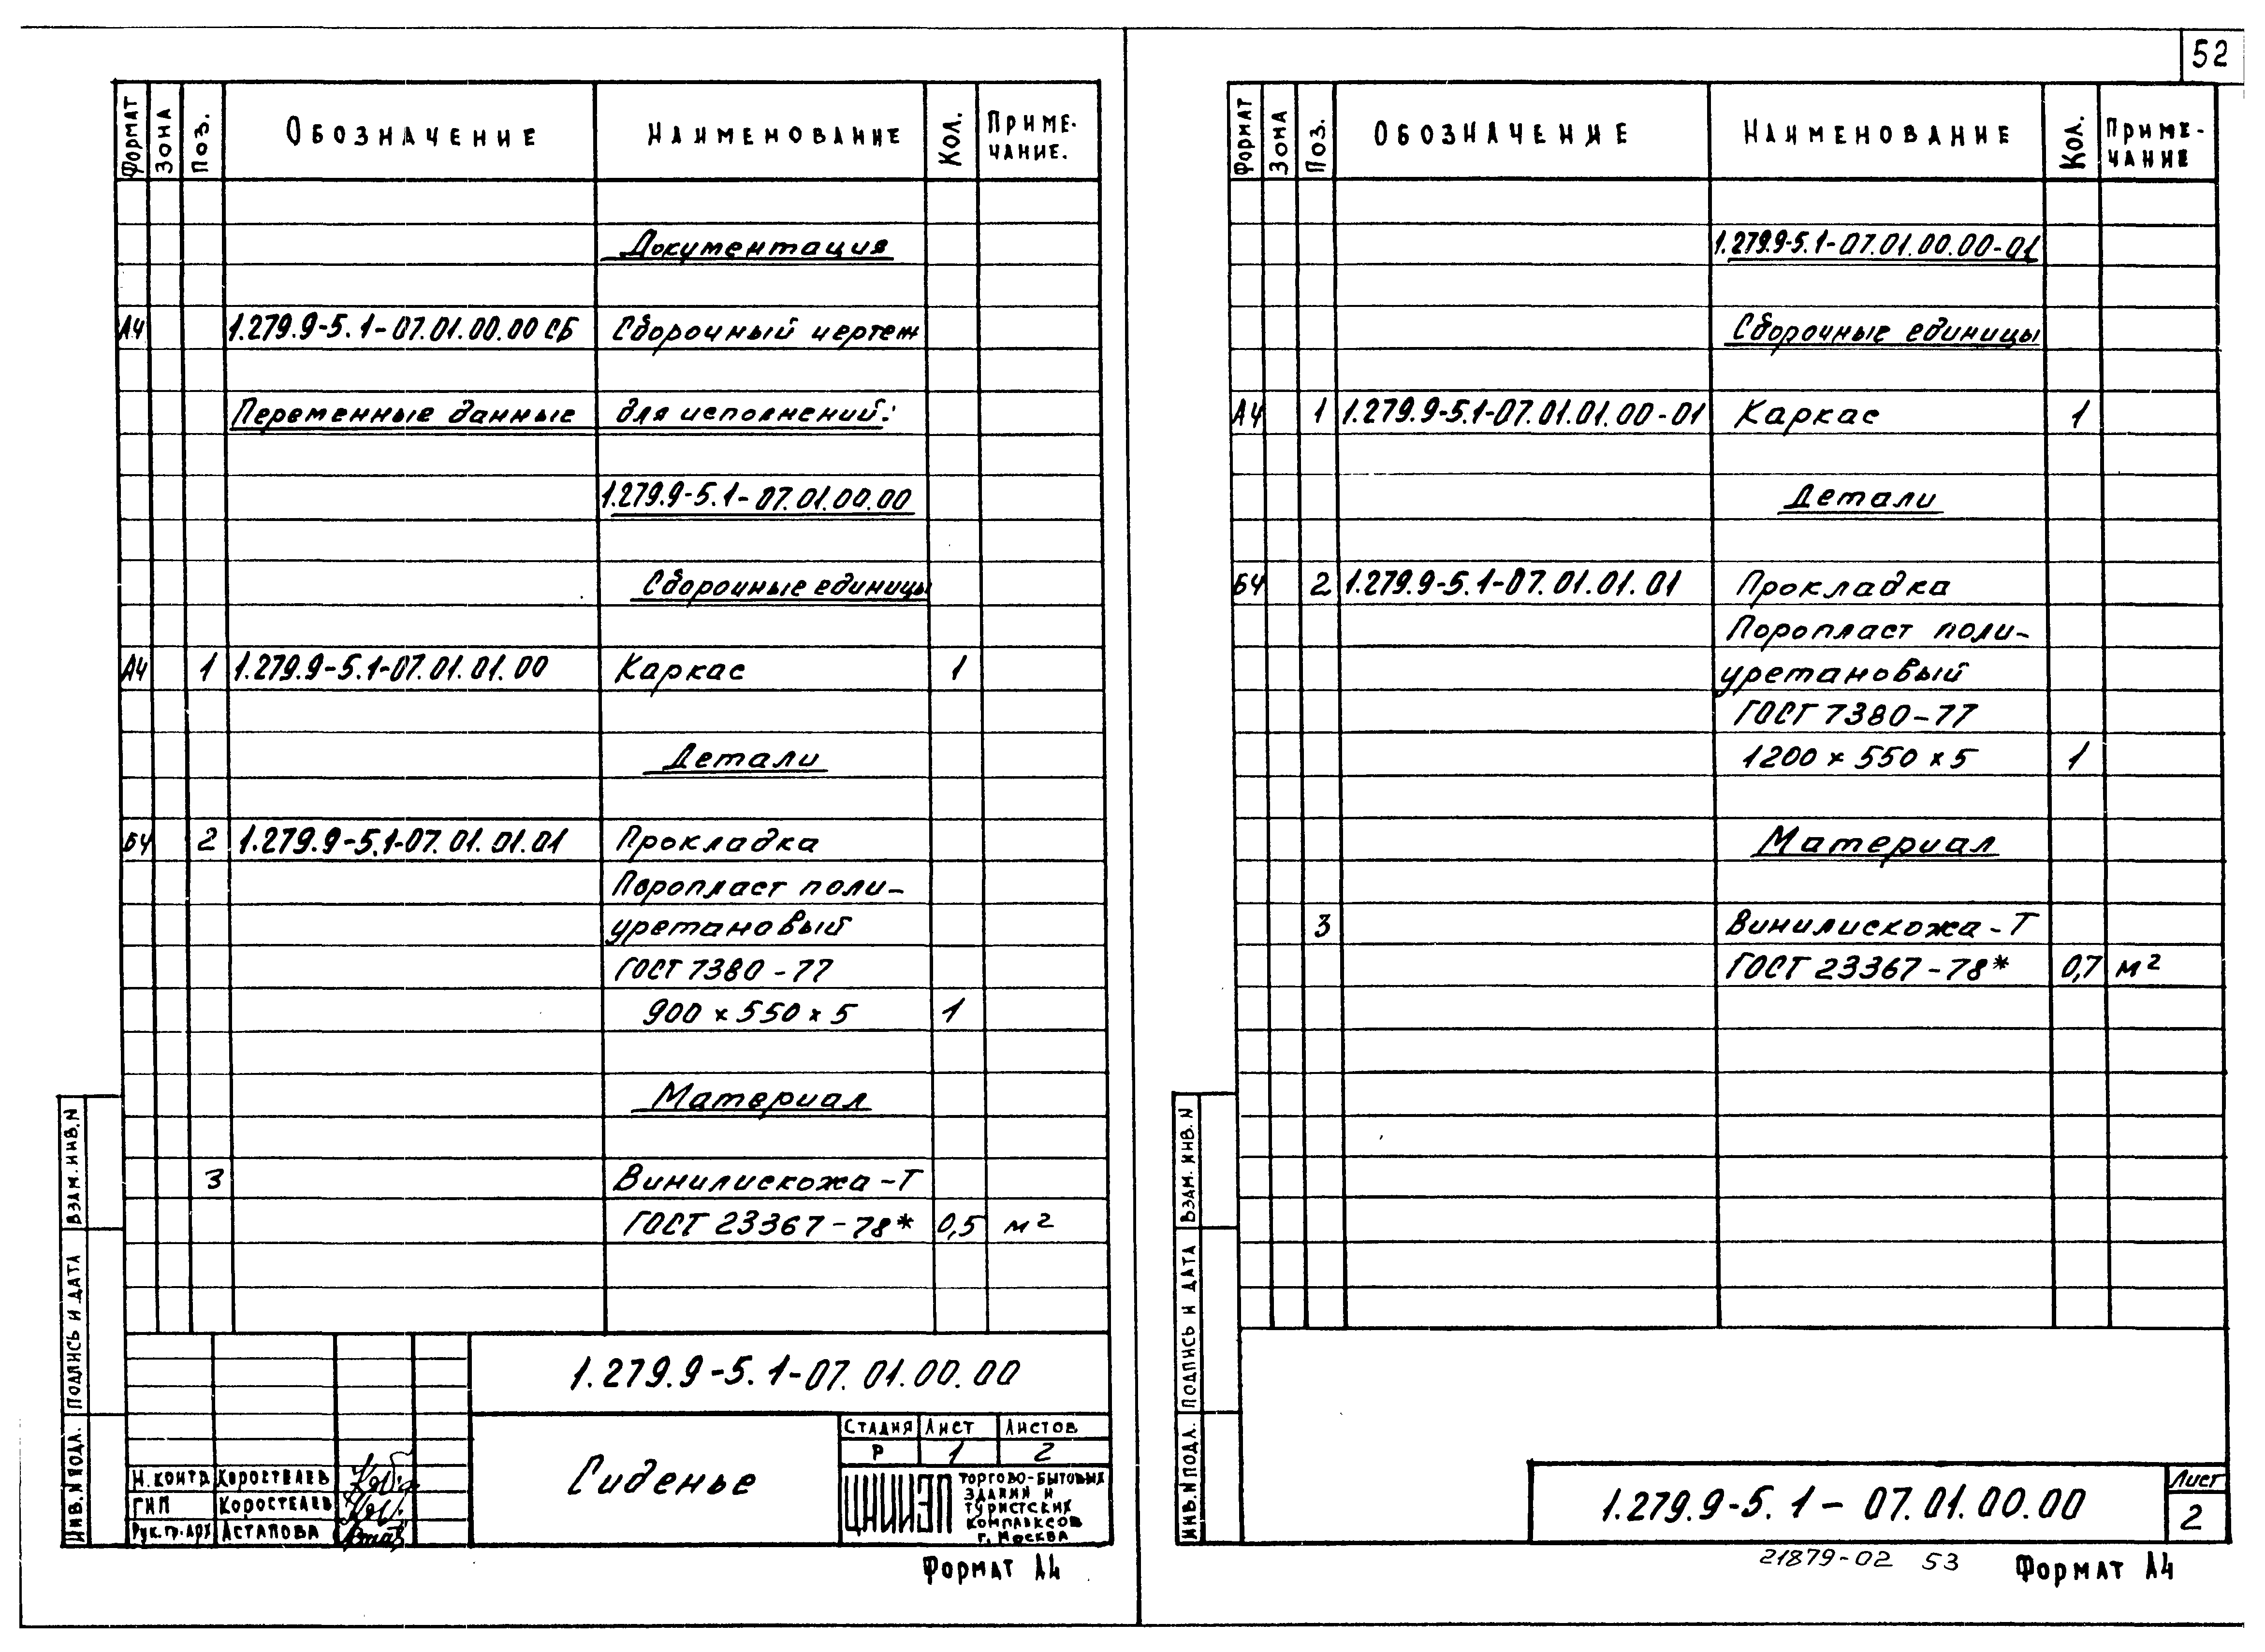 52
Формат Зона Поз. Обозначение Наименование Кол. Приме-
чание.
Документация
А4 1.279.9-5.1-07.01.00.00 СБ Сборочный чертеж
Переменные данные для исполнений:
1.279.9-5.1-07.01.00.00
Сборочные единицы
А4 1 1.279.9-5.1-07.01.01.00 Каркас 1
Детали
Б4 2 1.279.9-5.1-07.01.01.01 Прокладка
Поропласт поли-
уретановый
ГОСТ 7380-77
900 х 550 х 5 1
Материал
3 Винилискожа-Т
ГОСТ 23367-78* 0,5 м²
Взам. инв. N
Подпись и дата
Инв. N подл.
1.279.9-5.1-07.01.00.00
Сиденье
Стадия Лист Листов
Р 1 2
Н. контр Коростелев
ГИП Коростелев
Рук. гр. арх Астапова
ЦНИИЭП торгово-бытовых
зданий и
туристских
комплексов
г. Москва
Формат А4
Формат Зона Поз. Обозначение Наименование Кол. Приме-
чание
1.279.9-5.1-07.01.00.00-01
Сборочные единицы
А4 1 1.279.9-5.1-07.01.01.00-01 Каркас 1
Детали
Б4 2 1.279.9-5.1-07.01.01.01 Прокладка
Поропласт поли-
уретановый
ГОСТ 7380-77
1200 х 550 х 5 1
Материал
3 Винилискожа-Т
ГОСТ 23367-78* 0,7 м²
Взам. инв. N
Подпись и дата
Инв. N подл.
1.279.9-5.1-07.01.00.00
Лист
2
21879-02 53
Формат А4